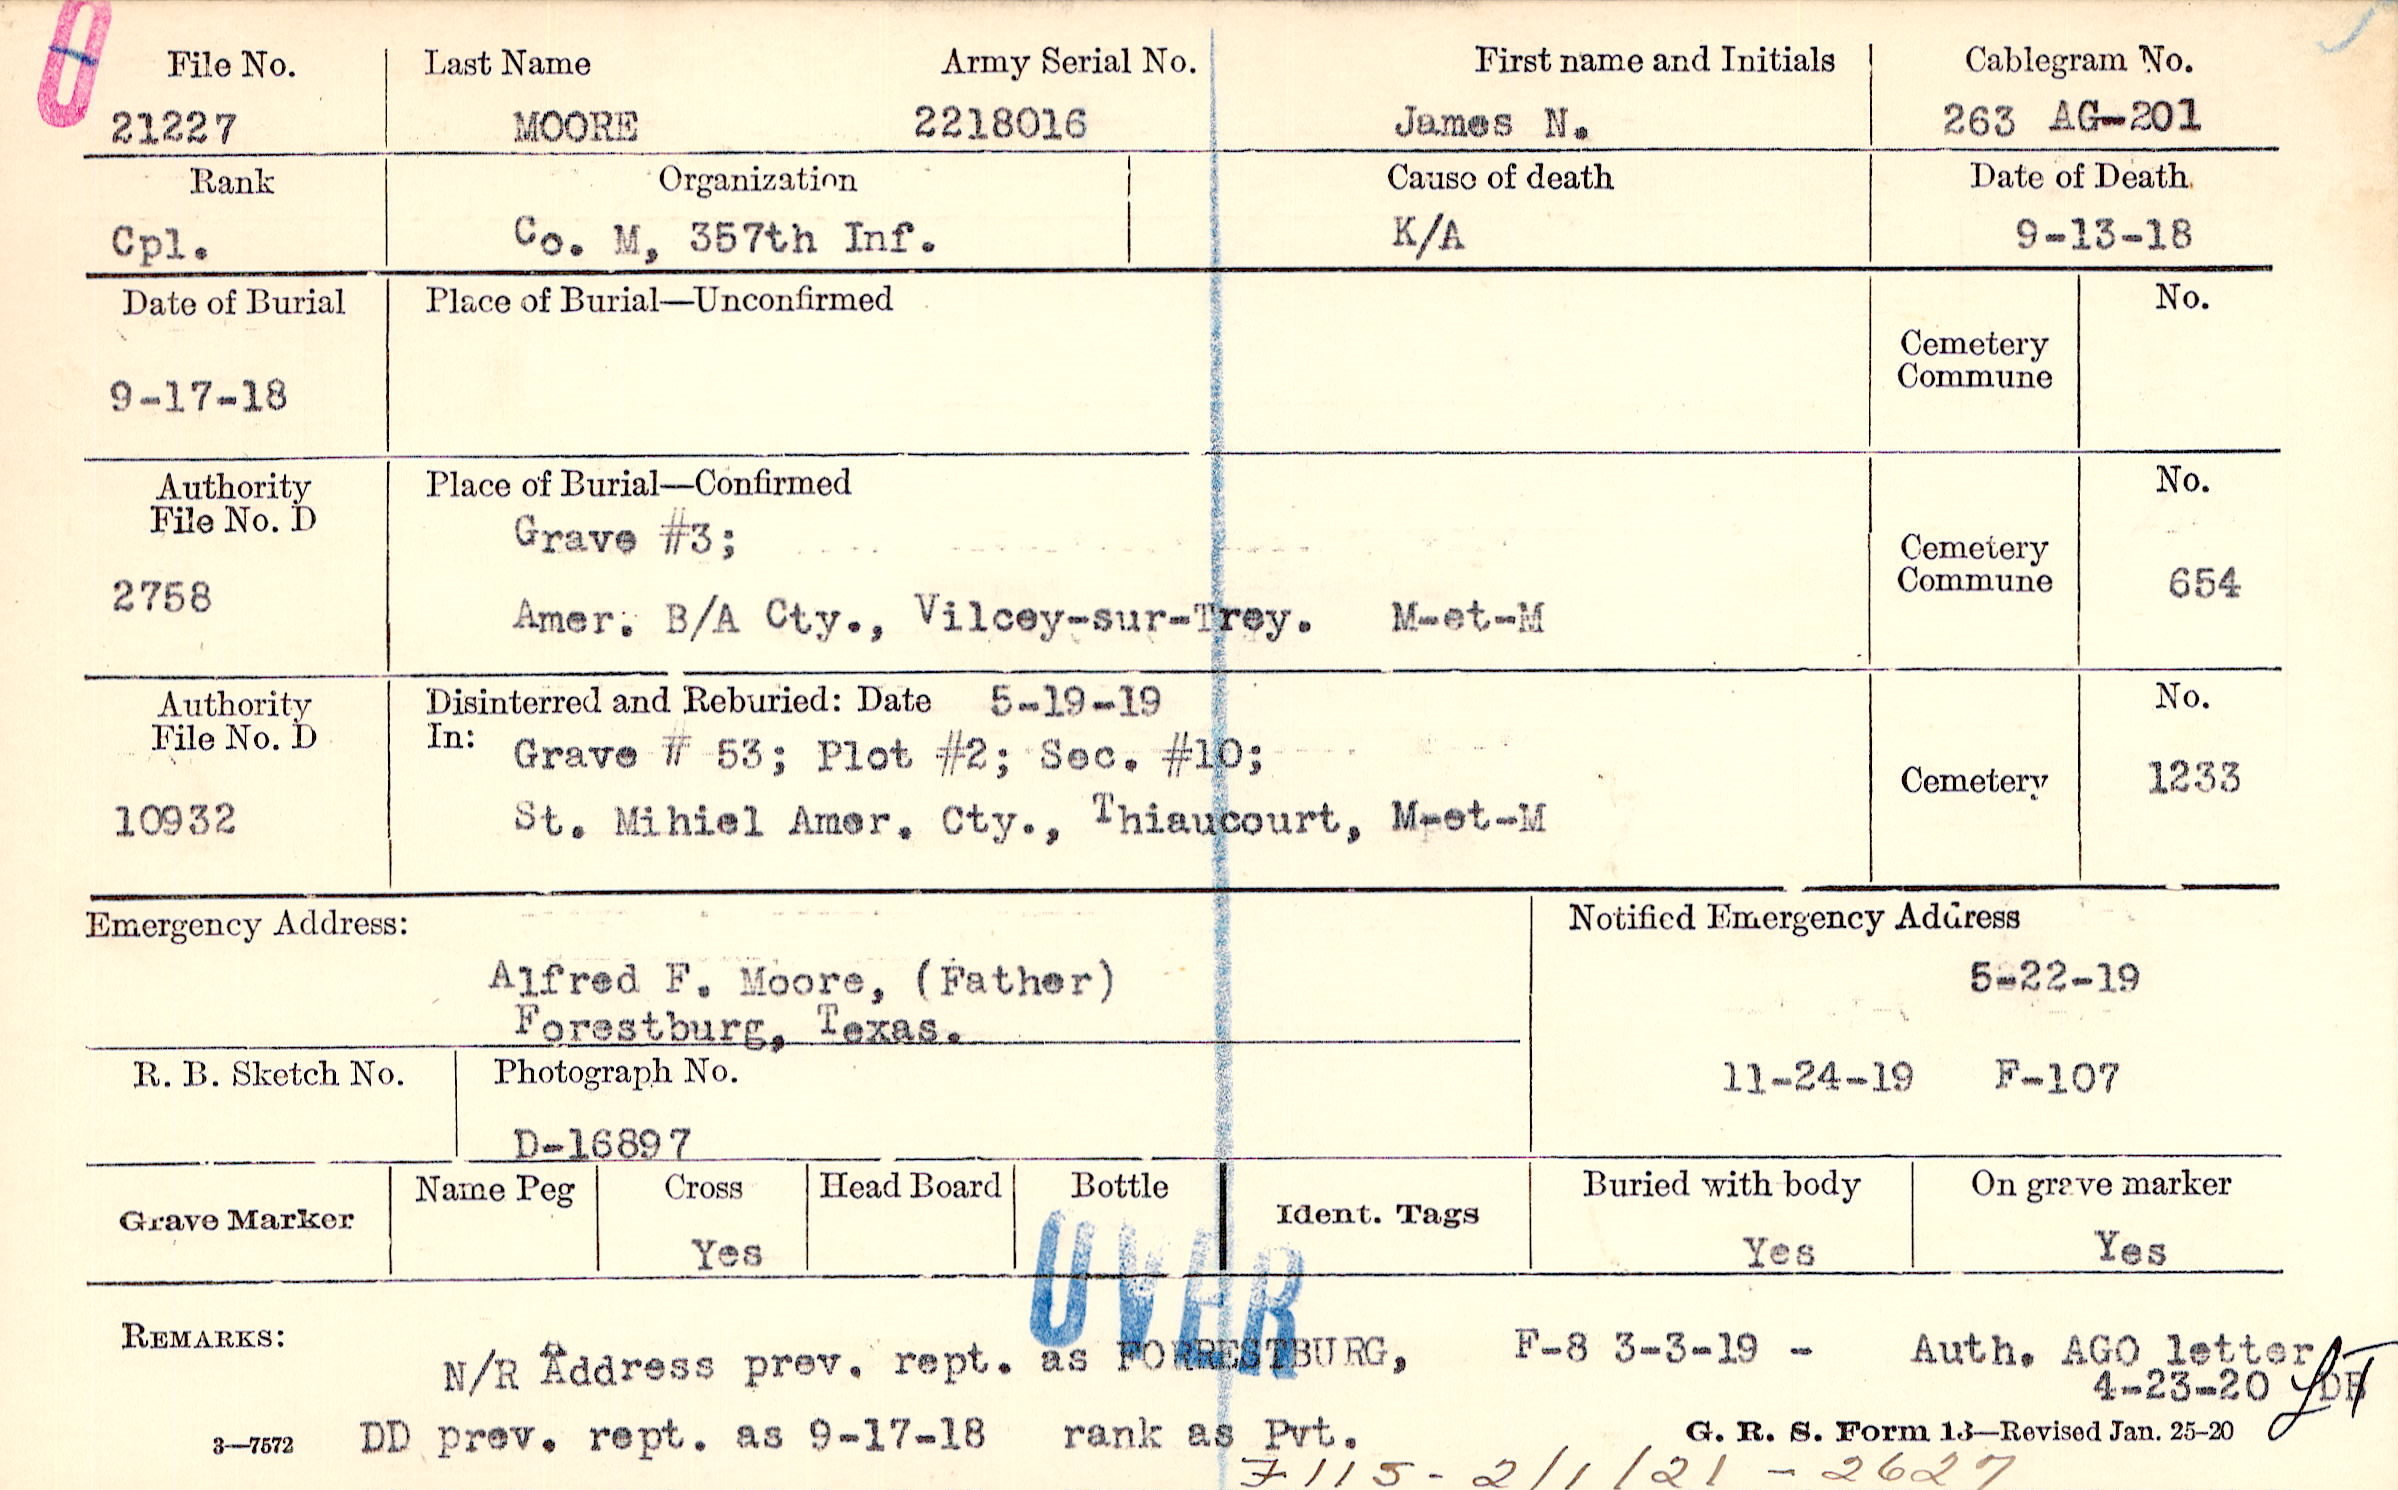 0
File No. Last Name Army Serial No. First name and Initials Cablegram No.
21227 MOORE 2218016 James N. 263 AG-201
Rank Organization Cause of death Date of Death
Cpl. Co. M, 357th Inf. K/A 9-13-18
Date of Burial Place of Burial—Unconfirmed No.
Cemetery
Commune
9-17-18
Authority Place of Burial—Confirmed No.
File No. D
Grave #3;
Cemetery
Commune 654
2758
Amer. B/A Cty., Vilcey-sur-Trey. M-et-M
Authority Disinterred and Reburied: Date 5-19-19 No.
File No. D In: Grave # 53; Plot #2; Sec. #10;
Cemetery 1233
10932 St. Mihiel Amer. Cty., Thiaucourt, M-et-M
Emergency Address: Notified Emergency Address
Alfred F. Moore, (Father) 5-22-19
Forestburg, Texas.
R. B. Sketch No. Photograph No. 11-24-19 F-107
D-16897
Grave Marker Name Peg Cross Head Board Bottle Ident. Tags Buried with body On grave marker
Yes Yes Yes
OVER
REMARKS:
N/R Address prev. rept. as FORRESTBURG, F-8 3-3-19 - Auth. AGO letter
4-23-20
3—7572 DD prev. rept. as 9-17-18 rank as Pvt. G. R. S. Form 13—Revised Jan. 25-20
F115 - 2/1/21 - 2627